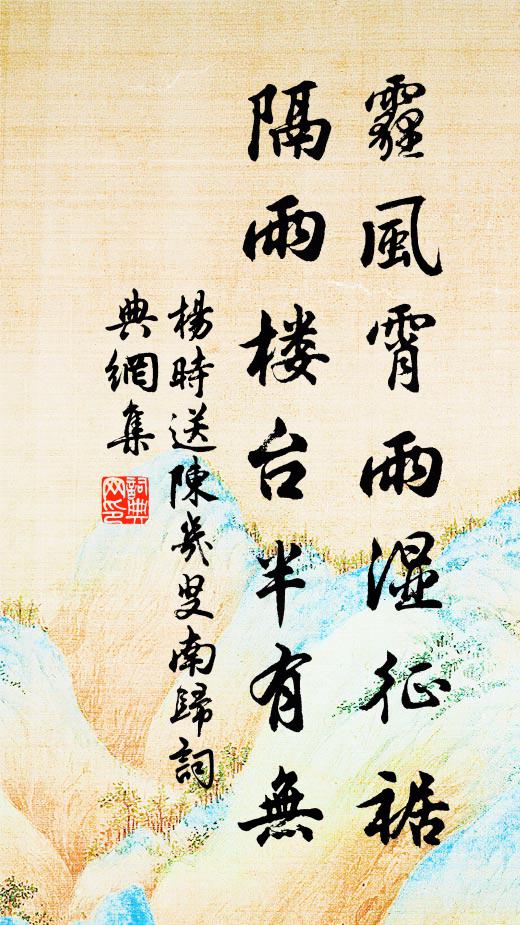 霾風霄雨湿征裾
隔雨楼台半有無
楊時送陳幾叟南歸詞
典網集
詞典
网印